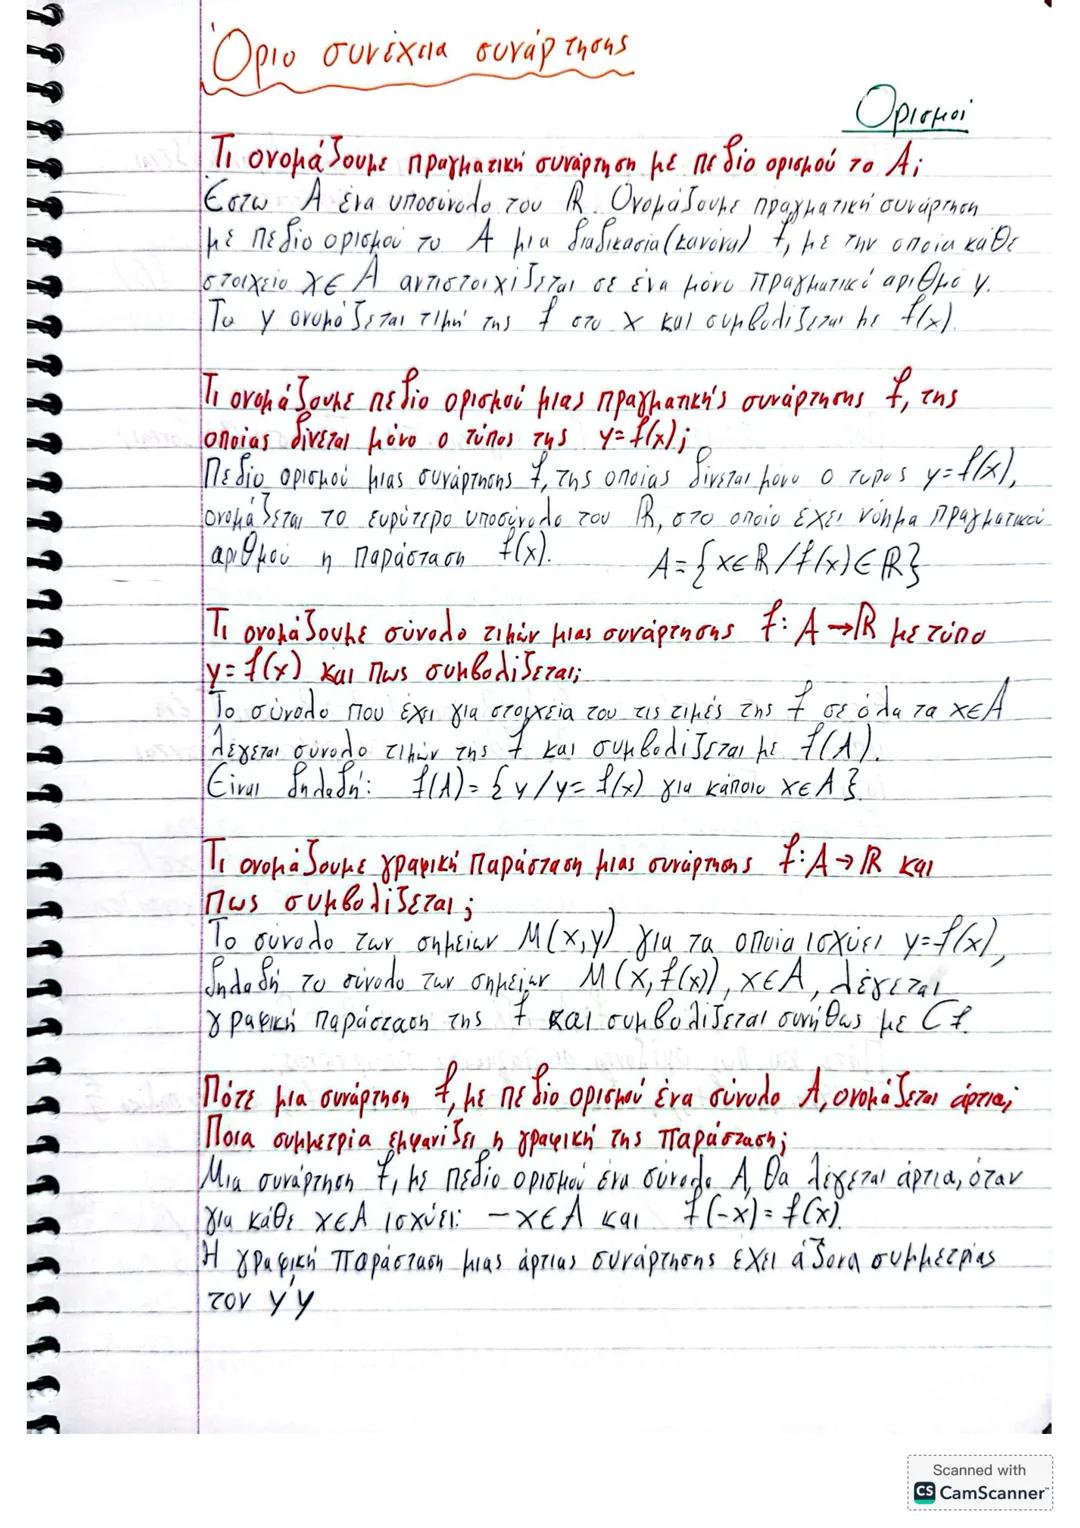 Όριο συνέχεια συνάρτησης
Ορισμοί
Τι ονομάζουμε πραγματική συνάρτηση με πεδίο ορισμού το Α;
Έστω Α ένα υποσύνολο του ℝ. Ονομάζουμε πραγματική συνάρτηση
με πεδίο ορισμού το Α μια διαδικασία (κανόνα) f, με την οποία κάθε
στοιχείο x∈A αντιστοιχίζεται σε ένα μόνο πραγματικό αριθμό y.
Το y ονομάζεται τιμή της f στο x και συμβολίζεται με f(x).
Τι ονομάζουμε πεδίο ορισμού μιας πραγματικής συνάρτησης f, της
οποίας δίνεται μόνο ο τύπος της y=f(x);
Πεδίο ορισμού μιας συνάρτησης f, της οποίας δίνεται μόνο ο τυπος y=f(x),
ονομάζεται το ευρύτερο υποσύνολο του ℝ, στο οποίο έχει νόημα πραγματικού
αριθμού η παράσταση f(x). A={x∈ℝ/f(x)∈ℝ}
Τι ονομάζουμε σύνολο τιμών μιας συνάρτησης f: A→ℝ με τύπο
y=f(x) και πως συμβολίζεται;
Το σύνολο που έχει για στοιχεία του τις τιμές της f σε όλα τα x∈A
λέγεται σύνολο τιμών της f και συμβολίζεται με f(A).
Είναι δηλαδή: f(A)={y/y=f(x) για κάποιο x∈A}.
Τι ονομάζουμε γραφική παράσταση μιας συνάρτησης f:A→ℝ και
πως συμβολίζεται;
Το σύνολο των σημείων M(x,y) για τα οποία ισχύει y=f(x),
δηλαδή το σύνολο των σημείων M(x,f(x)), x∈A, λέγεται
γραφική παράσταση της f και συμβολίζεται συνήθως με Cf.
Πότε μια συνάρτηση f, με πεδίο ορισμού ένα σύνολο Α, ονομάζεται άρτια;
Ποια συμμετρία εμφανίζει η γραφική της παράσταση;
Μια συνάρτηση f, με πεδίο ορισμού ένα σύνολο Α, θα λέγεται άρτια, όταν
για κάθε x∈A ισχύει: -x∈A και f(-x)=f(x).
Η γραφική παράσταση μιας άρτιας συνάρτησης έχει άξονα συμμετρίας
τον y'y
Scanned with
CS CamScanner